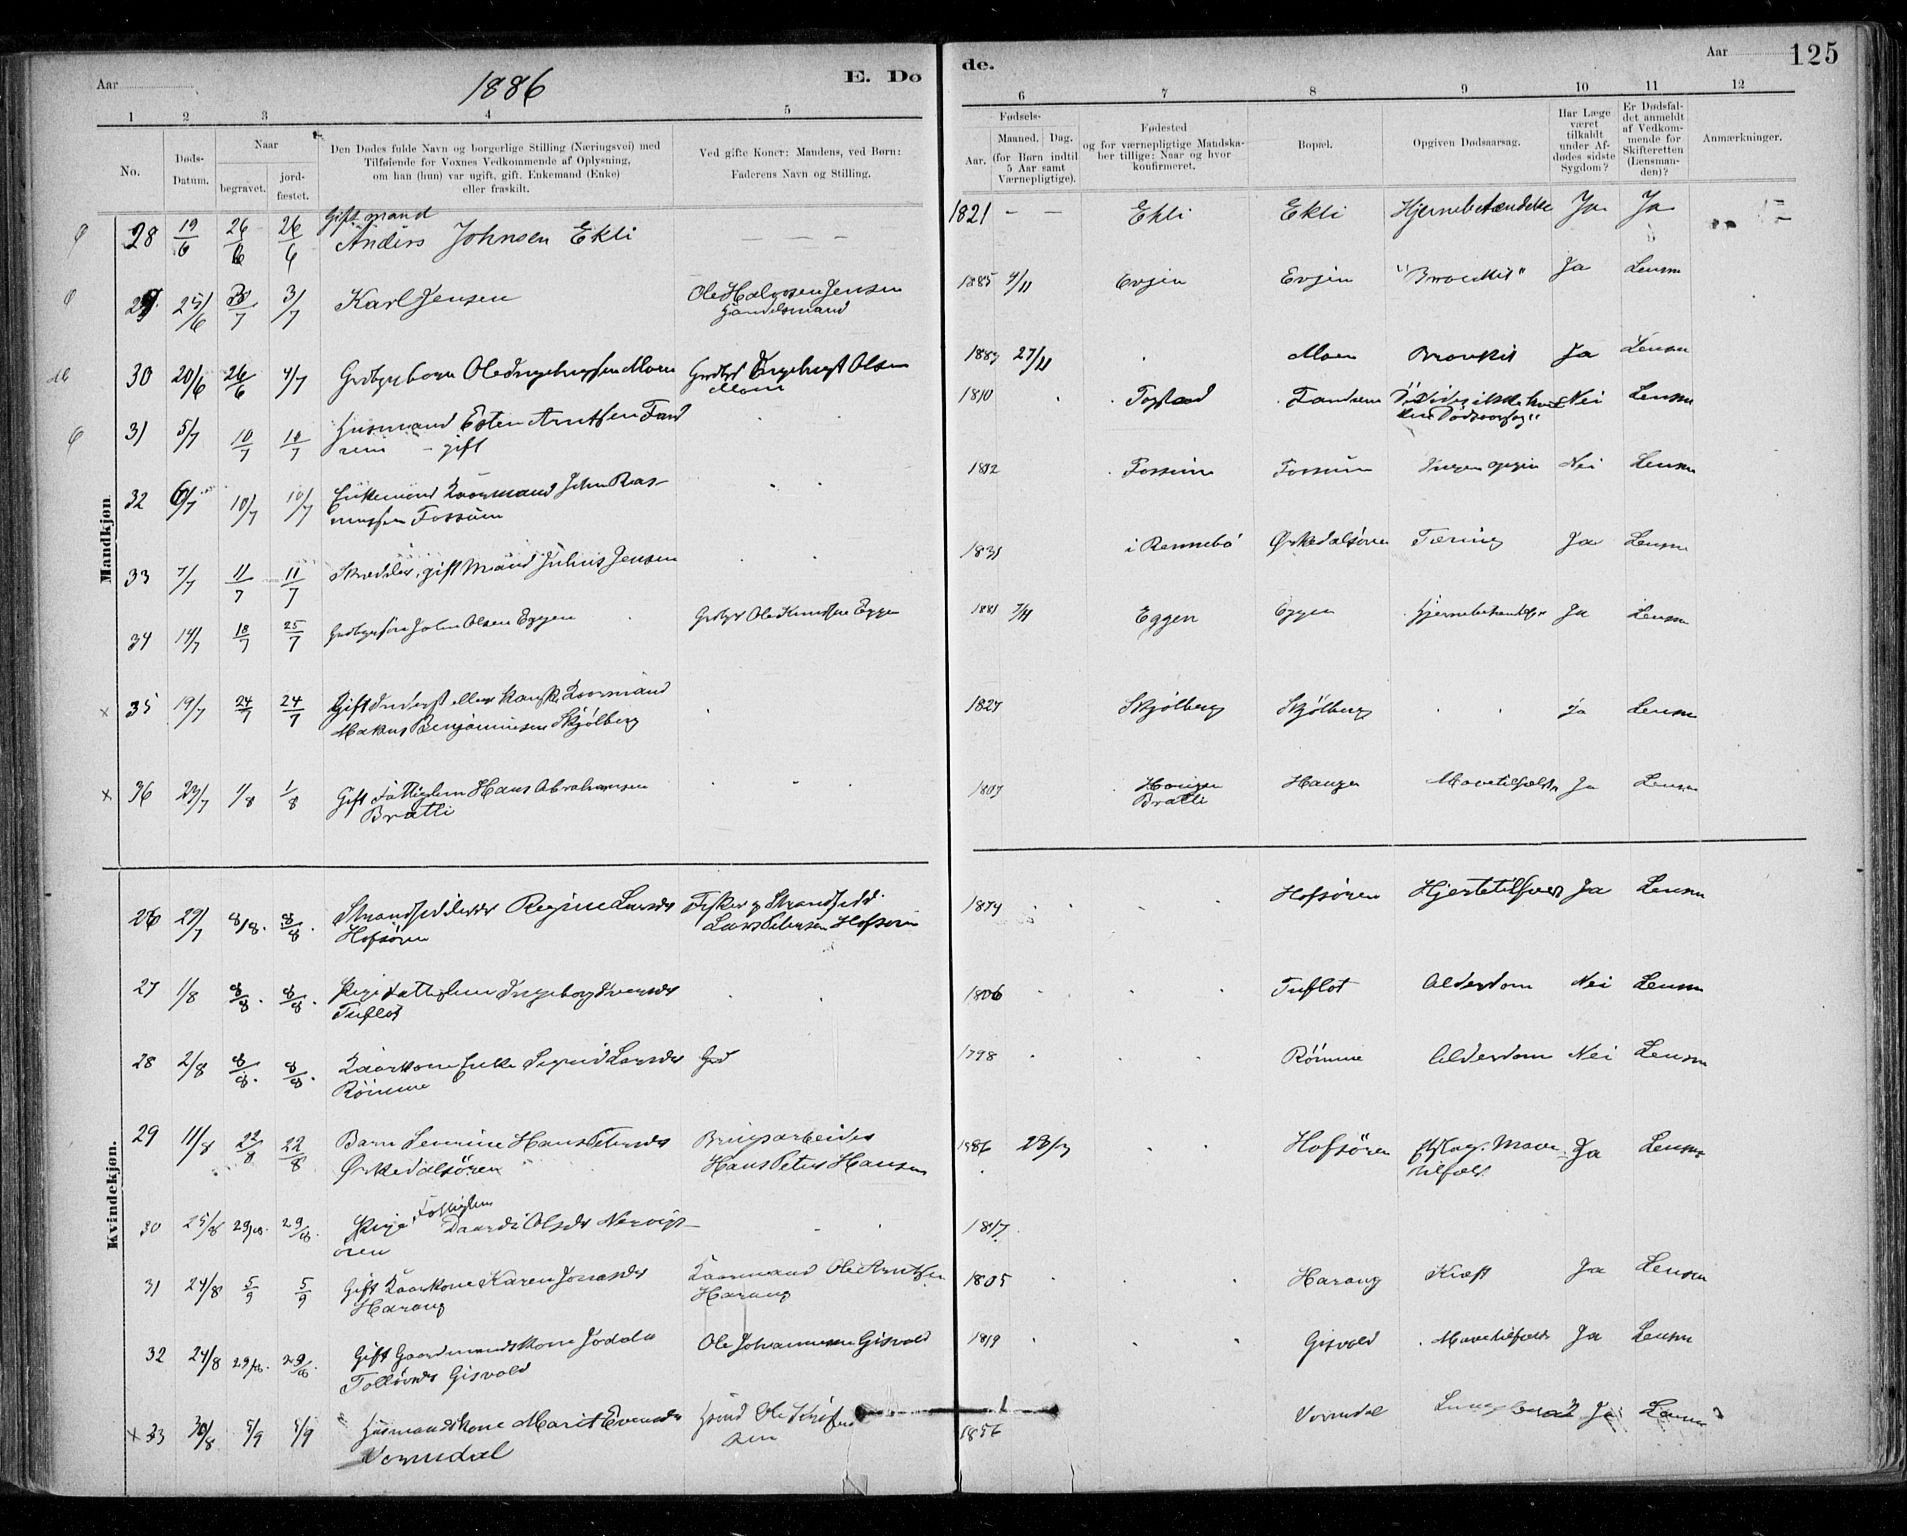 Aar 1886 E. Do
de. Aar 125
1 2 3 4 5
6 7 8 9 10 11 12
No.
Døds-
Datum.
Naar
begravet.
jord-
fæstet.
Den Dødes fulde Navn og borgerlige Stilling (Næringsvei) med
Tilføiende for Voxnes Vedkommende af Oplysning,
om han (hun) var ugift, gift, Enkemand (Enke)
eller fraskilt.
Ved gifte Koner: Mandens, ved Børn:
Faderens Navn og Stilling.
Fødsels-
Aar.
Maaned. Dag.
(for Børn indtil
5 Aar samt
Værnepligtige).
Fødested
og for værnepligtige Mandska-
ber tillige: Naar og hvor
konfirmeret.
Bopæl.
Opgiven Dødsaarsag.
Har Læge
været
tilkaldt
under Af-
dødes sidste
Sygdom?
Er Dødsfal-
det anmeldt
af Vedkom-
mende for
Skifteretten
(Lensman-
den)?
Anmærkninger.
Mandkjøn
Gift mand
28 19/6 26/6 26/6 Anders Johnsen Ekli — — — 1821 — — Ekli Ekli Hjernebetændelse Ja Ja
29 25/6 3/7 3/7 Karl Jensen Ole Halvorsen Jensen
Handelsmand
1885 4/11 Evjen Evjen "Bronkit" Ja Lensm
30 20/6 26/6 4/7 Ole Ingebrigtsen Moen Ingebrigt Olsen
Moen
27/11 Moen Bronkit Ja Lensm
31 5/7 10/7 10/7 Husmand Esten Arntsen Fand
rem – gift
1810 Fandrem Nei Lensm
32 6/7 10/7 10/7 Enkemand Kaarmand John Ras-
mussen Fossum
1812 Fossum Fossum Ingen opgiven Nei Lensm
33 7/7 11/7 11/7 Skrædder, gift Mand Julius Jensen
1831 i Rennebö Ørkedalsören Tæring Ja Lensm
34 14/7 18/7 25/7 John Olsen Eggen Ole Knudsen Eggen
1881 Eggen Eggen Ja Lensm
35 19/7 24/7 24/7 Gift Inderst eller kanske Kaarmand
Makus Benjaminsen Skjølberg
1827 Skjølberg Skjølberg Ja Lensm
36 23/7 1/8 1/8 Gift Fattiglem Hans Abrahamsen
Bratli
Haugen
Bratli
Haugen Mavetilfælde Ja Lensm
Kvindekjøn.
26 29/7 8/8. 8/8. Strandsidder Regine Larsdr
Hofsören
Fisker og Strandsidd.
Lars Petersen Hofsören
1874 Hofsören Hjertetilfæld Ja Lensm
27 1/8 8/8. 8/8. Pige Fattiglem Ingeborg Iversdr
Tuflot
1806 Tuflot Alderdom Nei Lensm
28 2/8 8/8. 8/8. Kaarkone Enke Sigrid Larsdr
Römme
1798 Römme Alderdom Nei Lensm
29 11/8 22/8 22/8 Barn Severine Hans Petersdr
Ørkedalsören
Brugsarbeider
Hans Peter Hansen
1886 Hofsören Mave-
tilfæld
Ja Lensm
Fattiglem
30 25/8 29/8. 29/8. Pige Olsdr Nervigs-
ören
1817
31 24/8 5/9 5/9 Gift Kaarkone Karen Jonasdr
Harang
Kaarmand Ole Arntsen
Harang
1805 Harang Kræft Ja Lensm
32 24/8 29/8. 29/8. Gift Gaardmandskone Jödda
Gisvold
Ole Johannessen Gisvold
1819 Gisvold Mavetilfælde Ja Lensm
33 30/8 5/9 5/9 Husmandskone Marit Evensdr
Vormdal
1856 Vormdal Ja Lensm